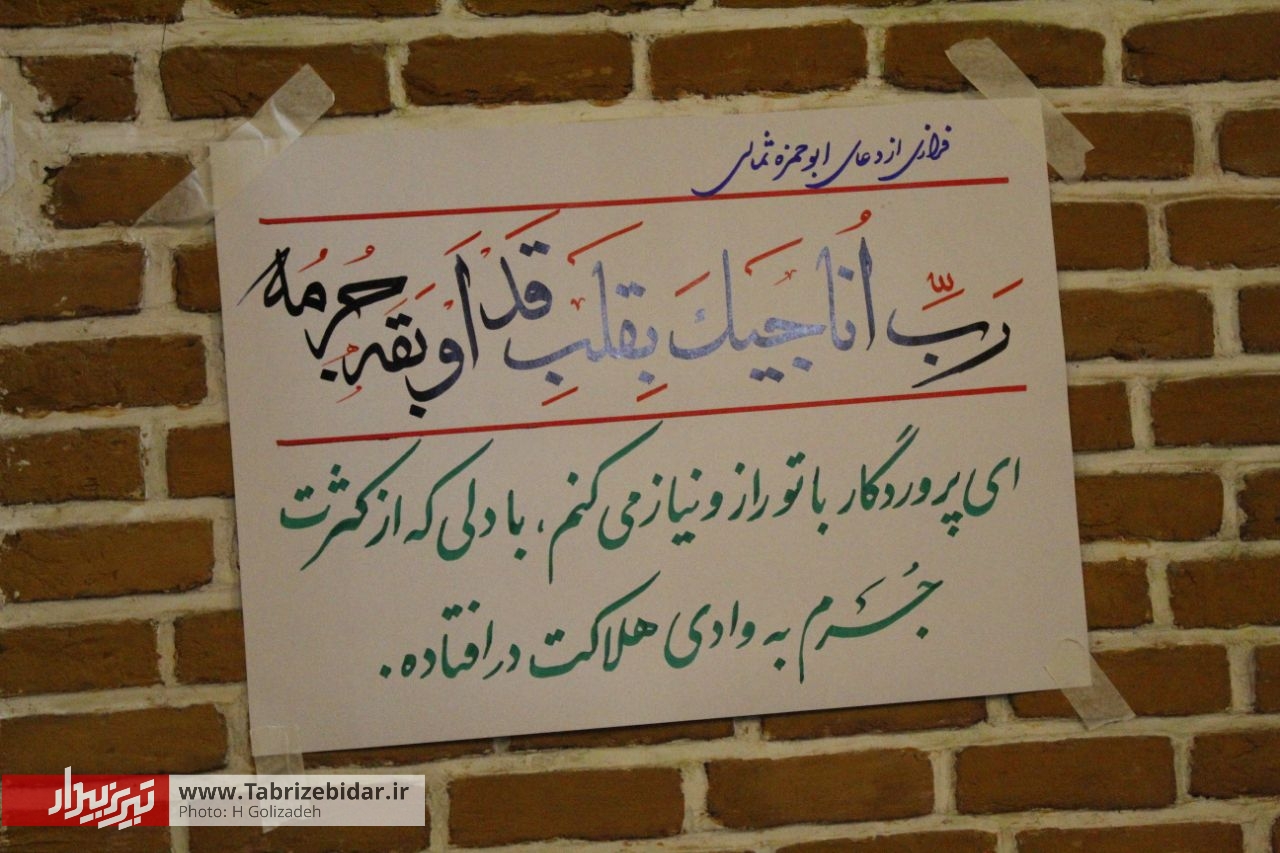 فرازی از دعای ابوحمزه ثمالی
رَبِّ اُناجیكَ بِقَلبٍ قَدْ اَوبَقَهُ جُرمُهُ
ای پروردگار با تو راز و نیاز می کنم، با دلی که از کثرت
جُرم به وادی هلاکت در افتاده.
تبریزبیدار
www.Tabrizebidar.ir
Photo: H Golizadeh